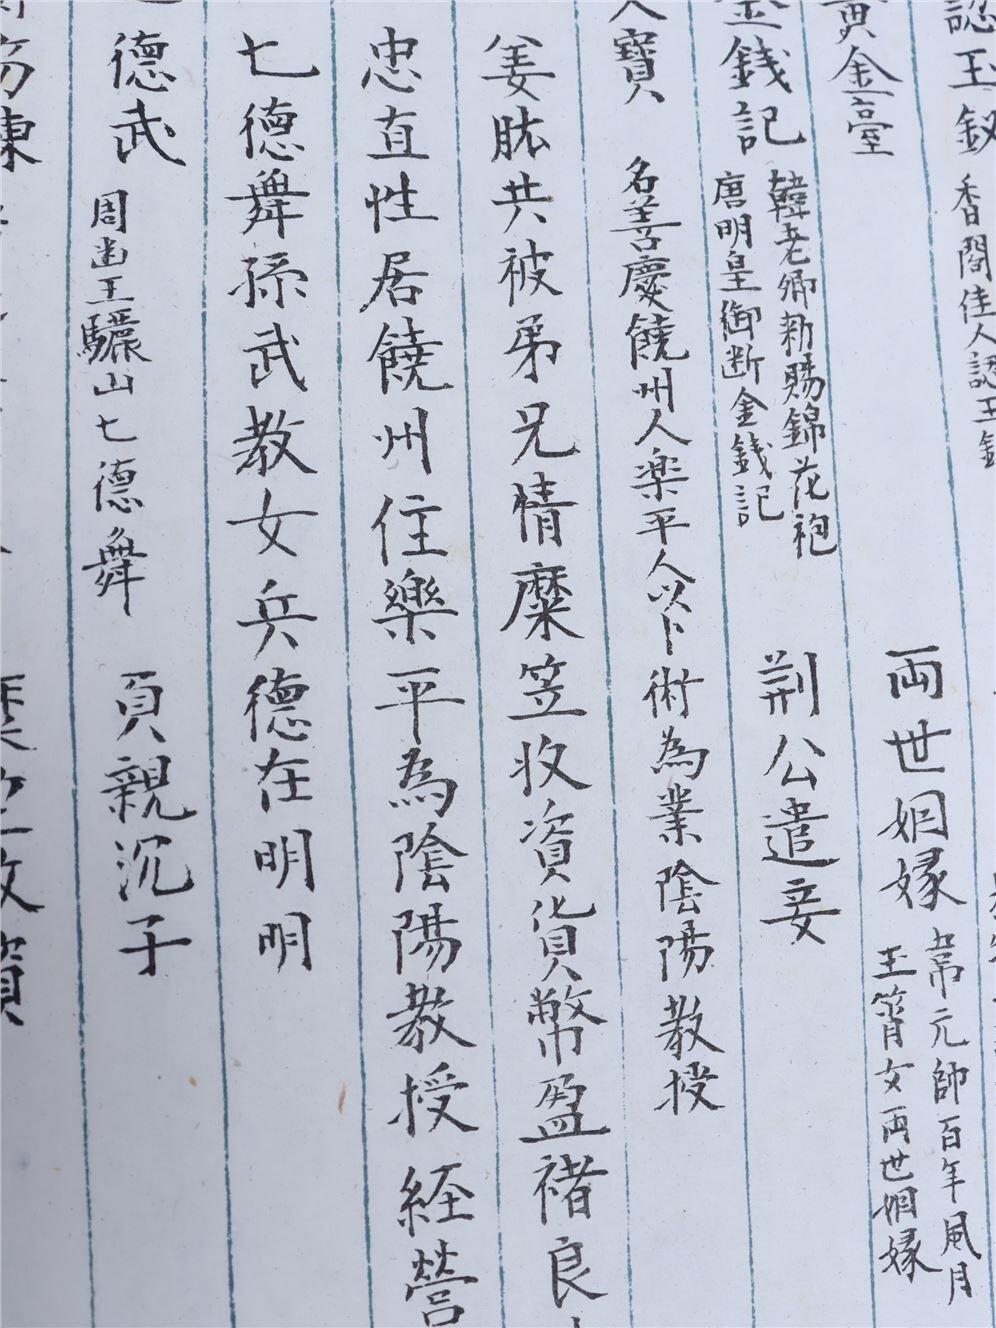 認玉釵 香閣佳人認玉釵
兩世姻緣 韋元帥百年風月
玉簫女兩世姻緣
黃金臺
金錢記 韓老卿勅賜錦花袍
唐明皇御断金錢記
荆公遣妾
寶 名善慶饒州人楽平人以卜術為業陰陽教授
姜肱共被弟兄情糜笠收資貨幣盈褚良
忠直性居饒州住樂平為陰陽教授経營
七德舞孫武教女兵德在明明
德武 周幽王驪山七德舞
貢親沉子